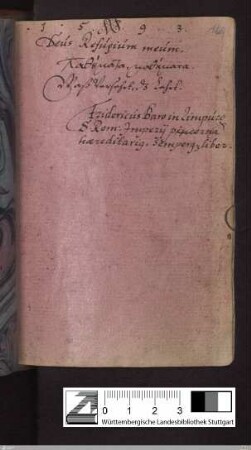 1 5 9 3.
Deus Refugium meum.
παθήματα, μαθήματα.
Fridericus Baro in Limpurg
S. Rom. Imperij pincerna
hæreditariq. semperq, liber.
0 1 2 3
Württembergische Landesbibliothek Stuttgart